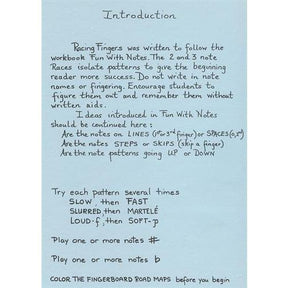 Introduction
Racing Fingers was written to follow the
workbook Fun With Notes. The 2 and 3 note
Races isolate patterns to give the beginning
reader more success. Do not write in note
names or fingering. Encourage students to
figure them out and remember them without
written aids.
Ideas introduced in Fun With Notes
should be continued here:
Are the notes on LINES (1st or 3rd finger) or SPACES
Are the notes STEPS or SKIPS (skip a finger)
Are the note patterns going UP or DOWN
Try each pattern several times
SLOW, then FAST
SLURRED, then MARTELÉ
LOUD-f, then SOFT-p
Play one or more notes #
Play one or more notes b
COLOR THE FINGERBOARD ROAD MAPS before you begin